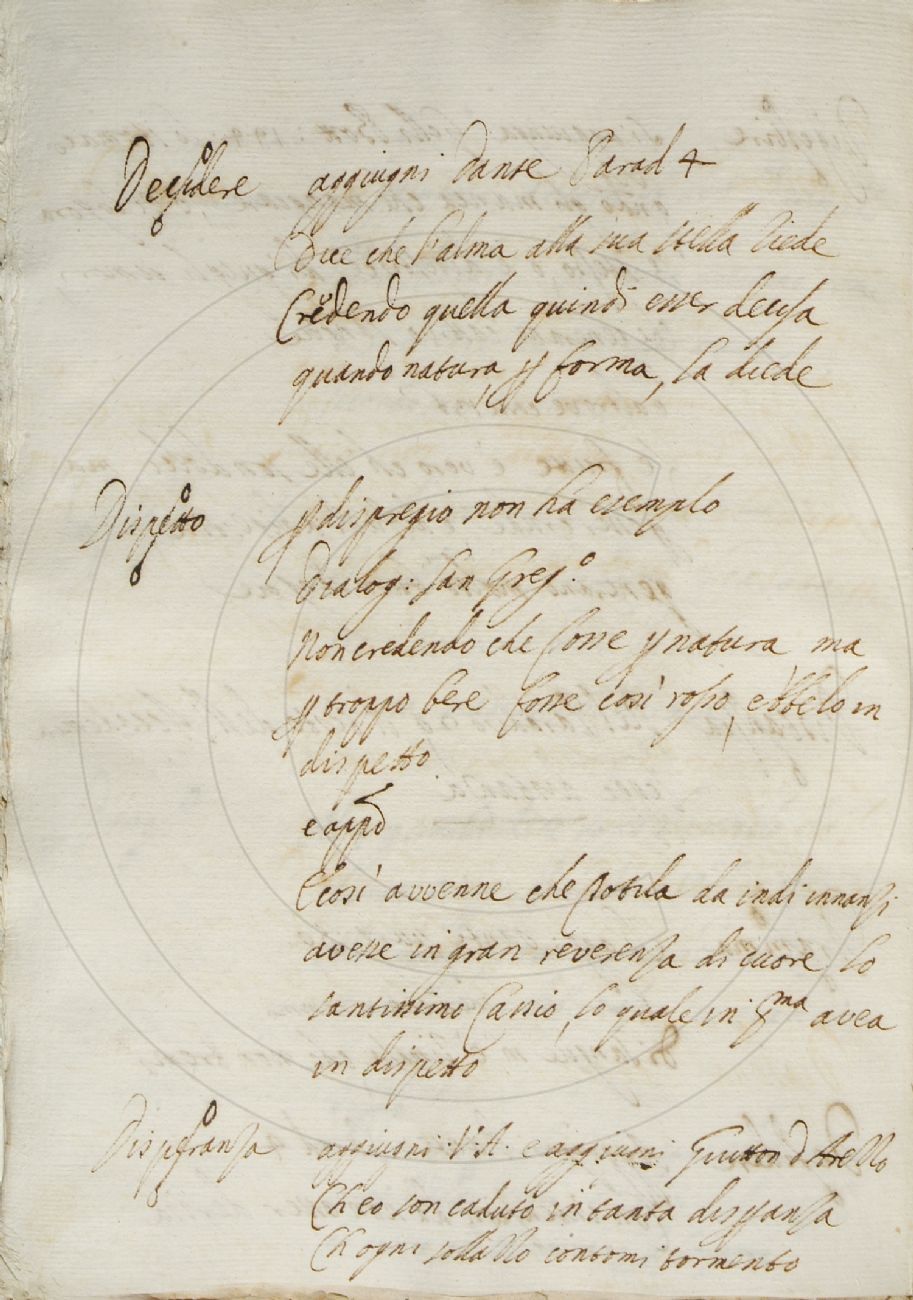 Decidere aggiugni Dante Parad 4
Dice che l'alma alla sua stella riede
Credendo quella quindi esser decisa
quando natura, p forma, la diede
Dispetto p dispregio non ha esemplo
Dialog: San Greg.º
Non credendo che fosse p natura ma
p troppo bere fosse così rosso, ebbelo in
dispetto
e appo
E così avvenne che Totila da indi innanzi
avesse in gran reverenza di cuore lo
santissimo Cassio, lo quale in pma avea
in dispetto
Disperanza aggiugni V. A. e aggiugni Guitton d Arezzo
Ch eo son caduto in tanta dispanza
Ch ogni sollazzo contomi tormento